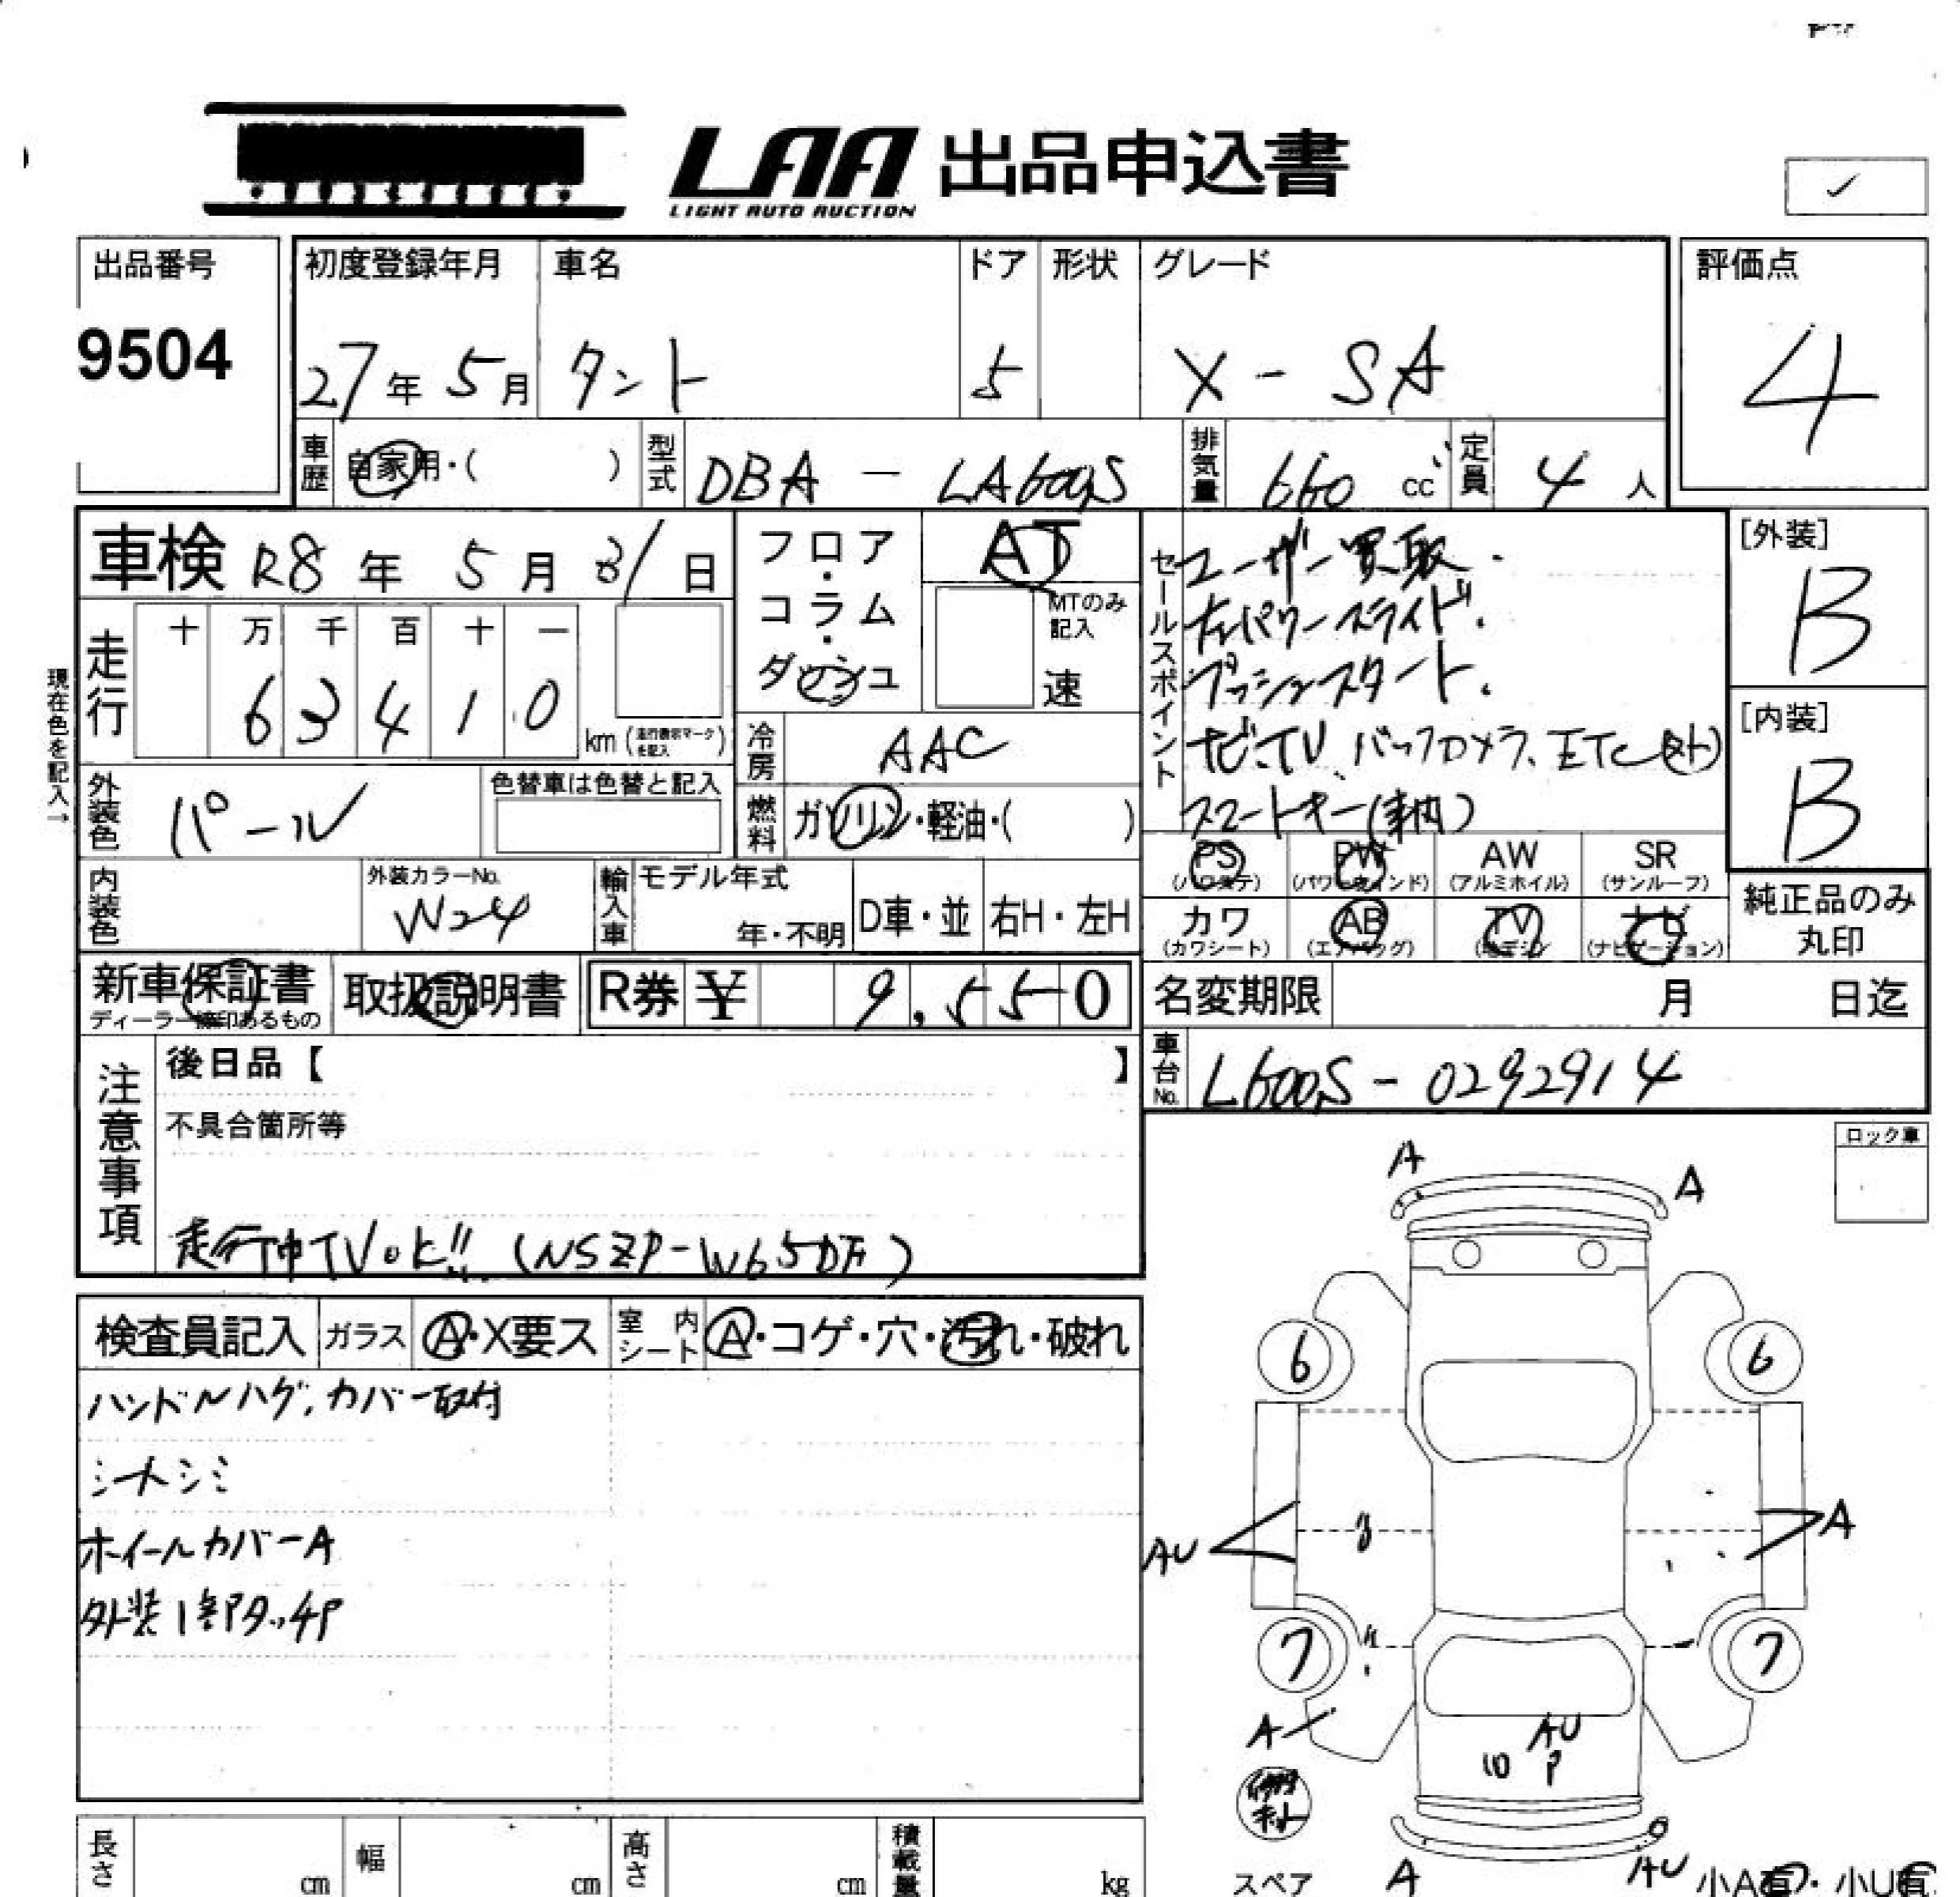 LAA 出品申込書
LIGHT AUTO AUCTION
出品番号
9504
初度登録年月
27年 5月
車名
タント
ドア
5
形状
グレード
X - SA
評価点
4
車歴
自家用・( )
型式
DBA - LA600S
排気量
660 cc
定員
4 人
車検 R8年 5月 31日
走行
十 万 千 百 十 一
6 3 4 1 0
km (走行表示マークを記入)
現在色を記入→
フロア・コラム・ダッシュ
AT
MTのみ記入
速
冷房
AAC
燃料
ガソリン・軽油・( )
外装色
パール
色替車は色替と記入
内装色
外装カラーNo.
W24
輸入車
モデル年式
年・不明
D車・並
右H・左H
セールスポイント
ユーザー買取.
左パワースライド.
プッシュスタート.
ナビ、TV、バックカメラ、ETC(外)
スマートキー(車内)
[外装]
B
[内装]
B
PS
(パワステ)
PW
(パワーウインド)
AW
(アルミホイル)
SR
(サンルーフ)
カワ
(カワシート)
AB
(エアバッグ)
TV
(地デジ)
ナビ
(ナビゲーション)
純正品のみ
丸印
新車保証書
ディーラー捺印あるもの
取扱説明書
R券 ¥ 9,550
名変期限
月 日迄
車台No.
L600S - 0292914
注意事項
後日品【 】
不具合箇所等
走行中TVok!! (NSZP-W65DF)
ロック車
検査員記入
ガラス
A・X要ス
室内シート
A・コゲ・穴・汚れ・破れ
ハンドルハグ、カバー取付
シートシミ
ホイールカバーA
外装1部タッチP
A
A
6
6
AU
A
7
7
A
AU
P
10
スペア
A
AU
小A有・小U有
長さ
cm
幅
cm
高さ
cm
積載量
kg